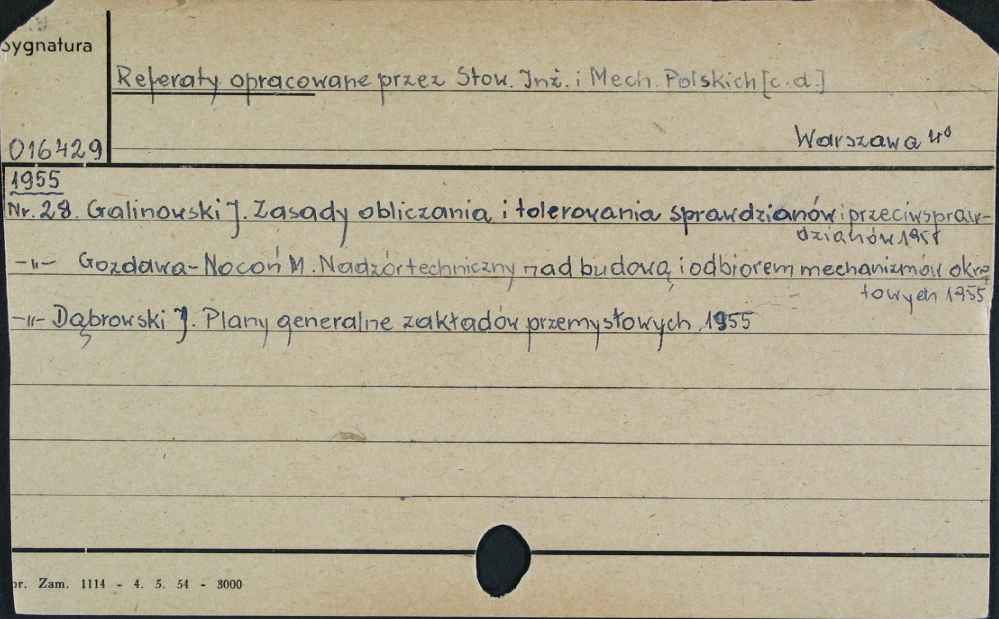 Sygnatura
Referaty opracowane przez Stow. Inż. i Mech. Polskich [c.d.]
Warszawa 4°
016429
1955
Nr. 28. Galinowski J. Zasady obliczania i tolerowania sprawdzianów i przeciwspraw-
dzianów 1955
-"- Gozdawa-Nocoń M. Nadzór techniczny nad budową i odbiorem mechanizmów okrę
towych 1955
-"- Dąbrowski J. Plany generalne zakładów przemysłowych, 1955
Zam. 1114 - 4. 5. 54 - 3000